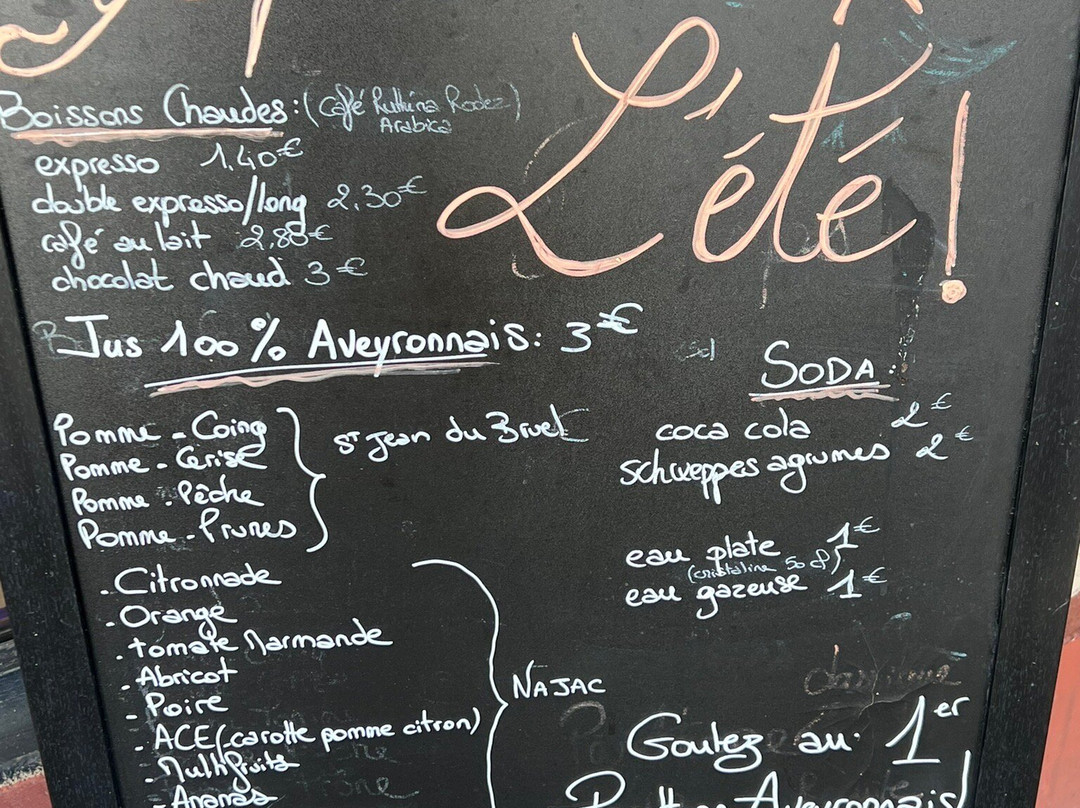 L'été!
Boissons Chaudes: (Café Ruthéna Rodez)
Arabica
expresso 1,40€
double expresso/long 2,30€
café au lait 2,80€
chocolat chaud 3€
Jus 100% Aveyronnais: 3€
Pomme - Coing
Pomme - Cerise
Pomme - Pêche
Pomme - Prunes
St Jean du Bruel
. Citronnade
. Orange
. tomate Marmande
. Abricot
- Poire
. ACE (carotte pomme citron)
. Multifruits
- Ananas
NAJAC
SODA:
coca cola 2€
schweppes agrumes 2€
eau plate 1€
(cristaline 50 cl)
eau gazeuse 1€
Goutez au 1er
Aveyronnais!